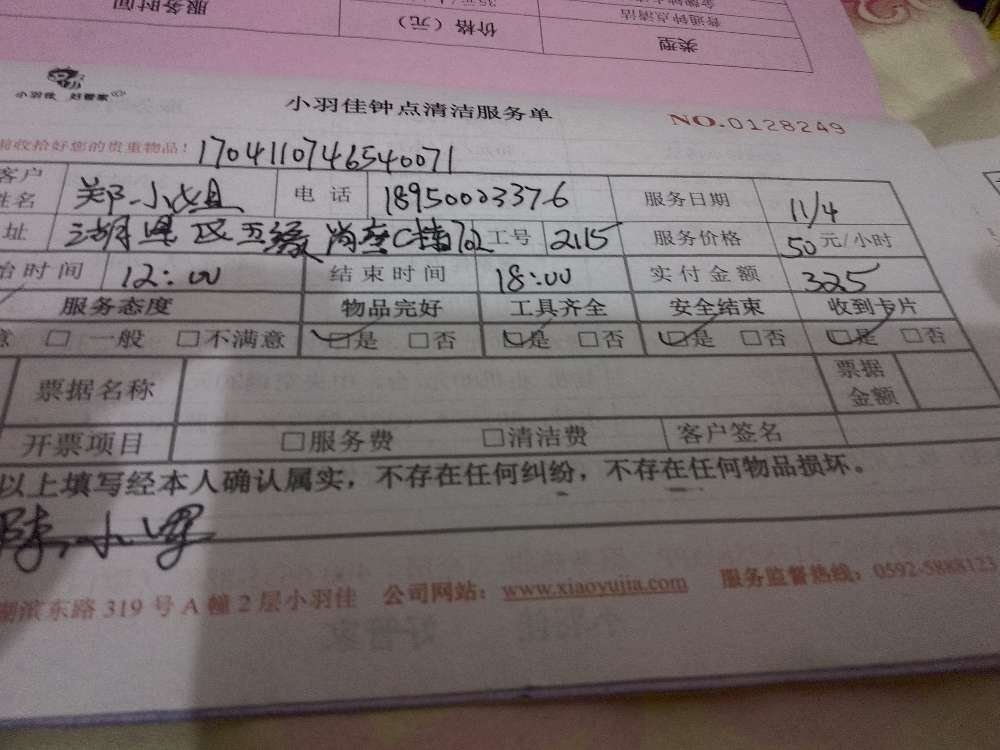 服务时间
价格（元）
类型
普通钟点清洁
小羽佳 好管家
小羽佳钟点清洁服务单
NO.0128249
收拾好您的贵重物品！ 1704110746540071
客户姓名 郑小姐 电话 18950003376 服务日期 11/4
址 湖里区五缘尚座C幢702 工号 2115 服务价格 50元/小时
始时间 12:00 结束时间 18:00 实付金额 325
服务态度 物品完好 工具齐全 安全结束 收到卡片
意 □ 一般 □不满意 □是 □否 □是 □否 □是 □否 □是 □否
票据名称 票据金额
开票项目 □服务费 □清洁费 客户签名
以上填写经本人确认属实，不存在任何纠纷，不存在任何物品损坏。
湖滨东路319号A幢2层小羽佳 公司网站：www.xiaoyujia.com 服务监督热线：0592-5888123